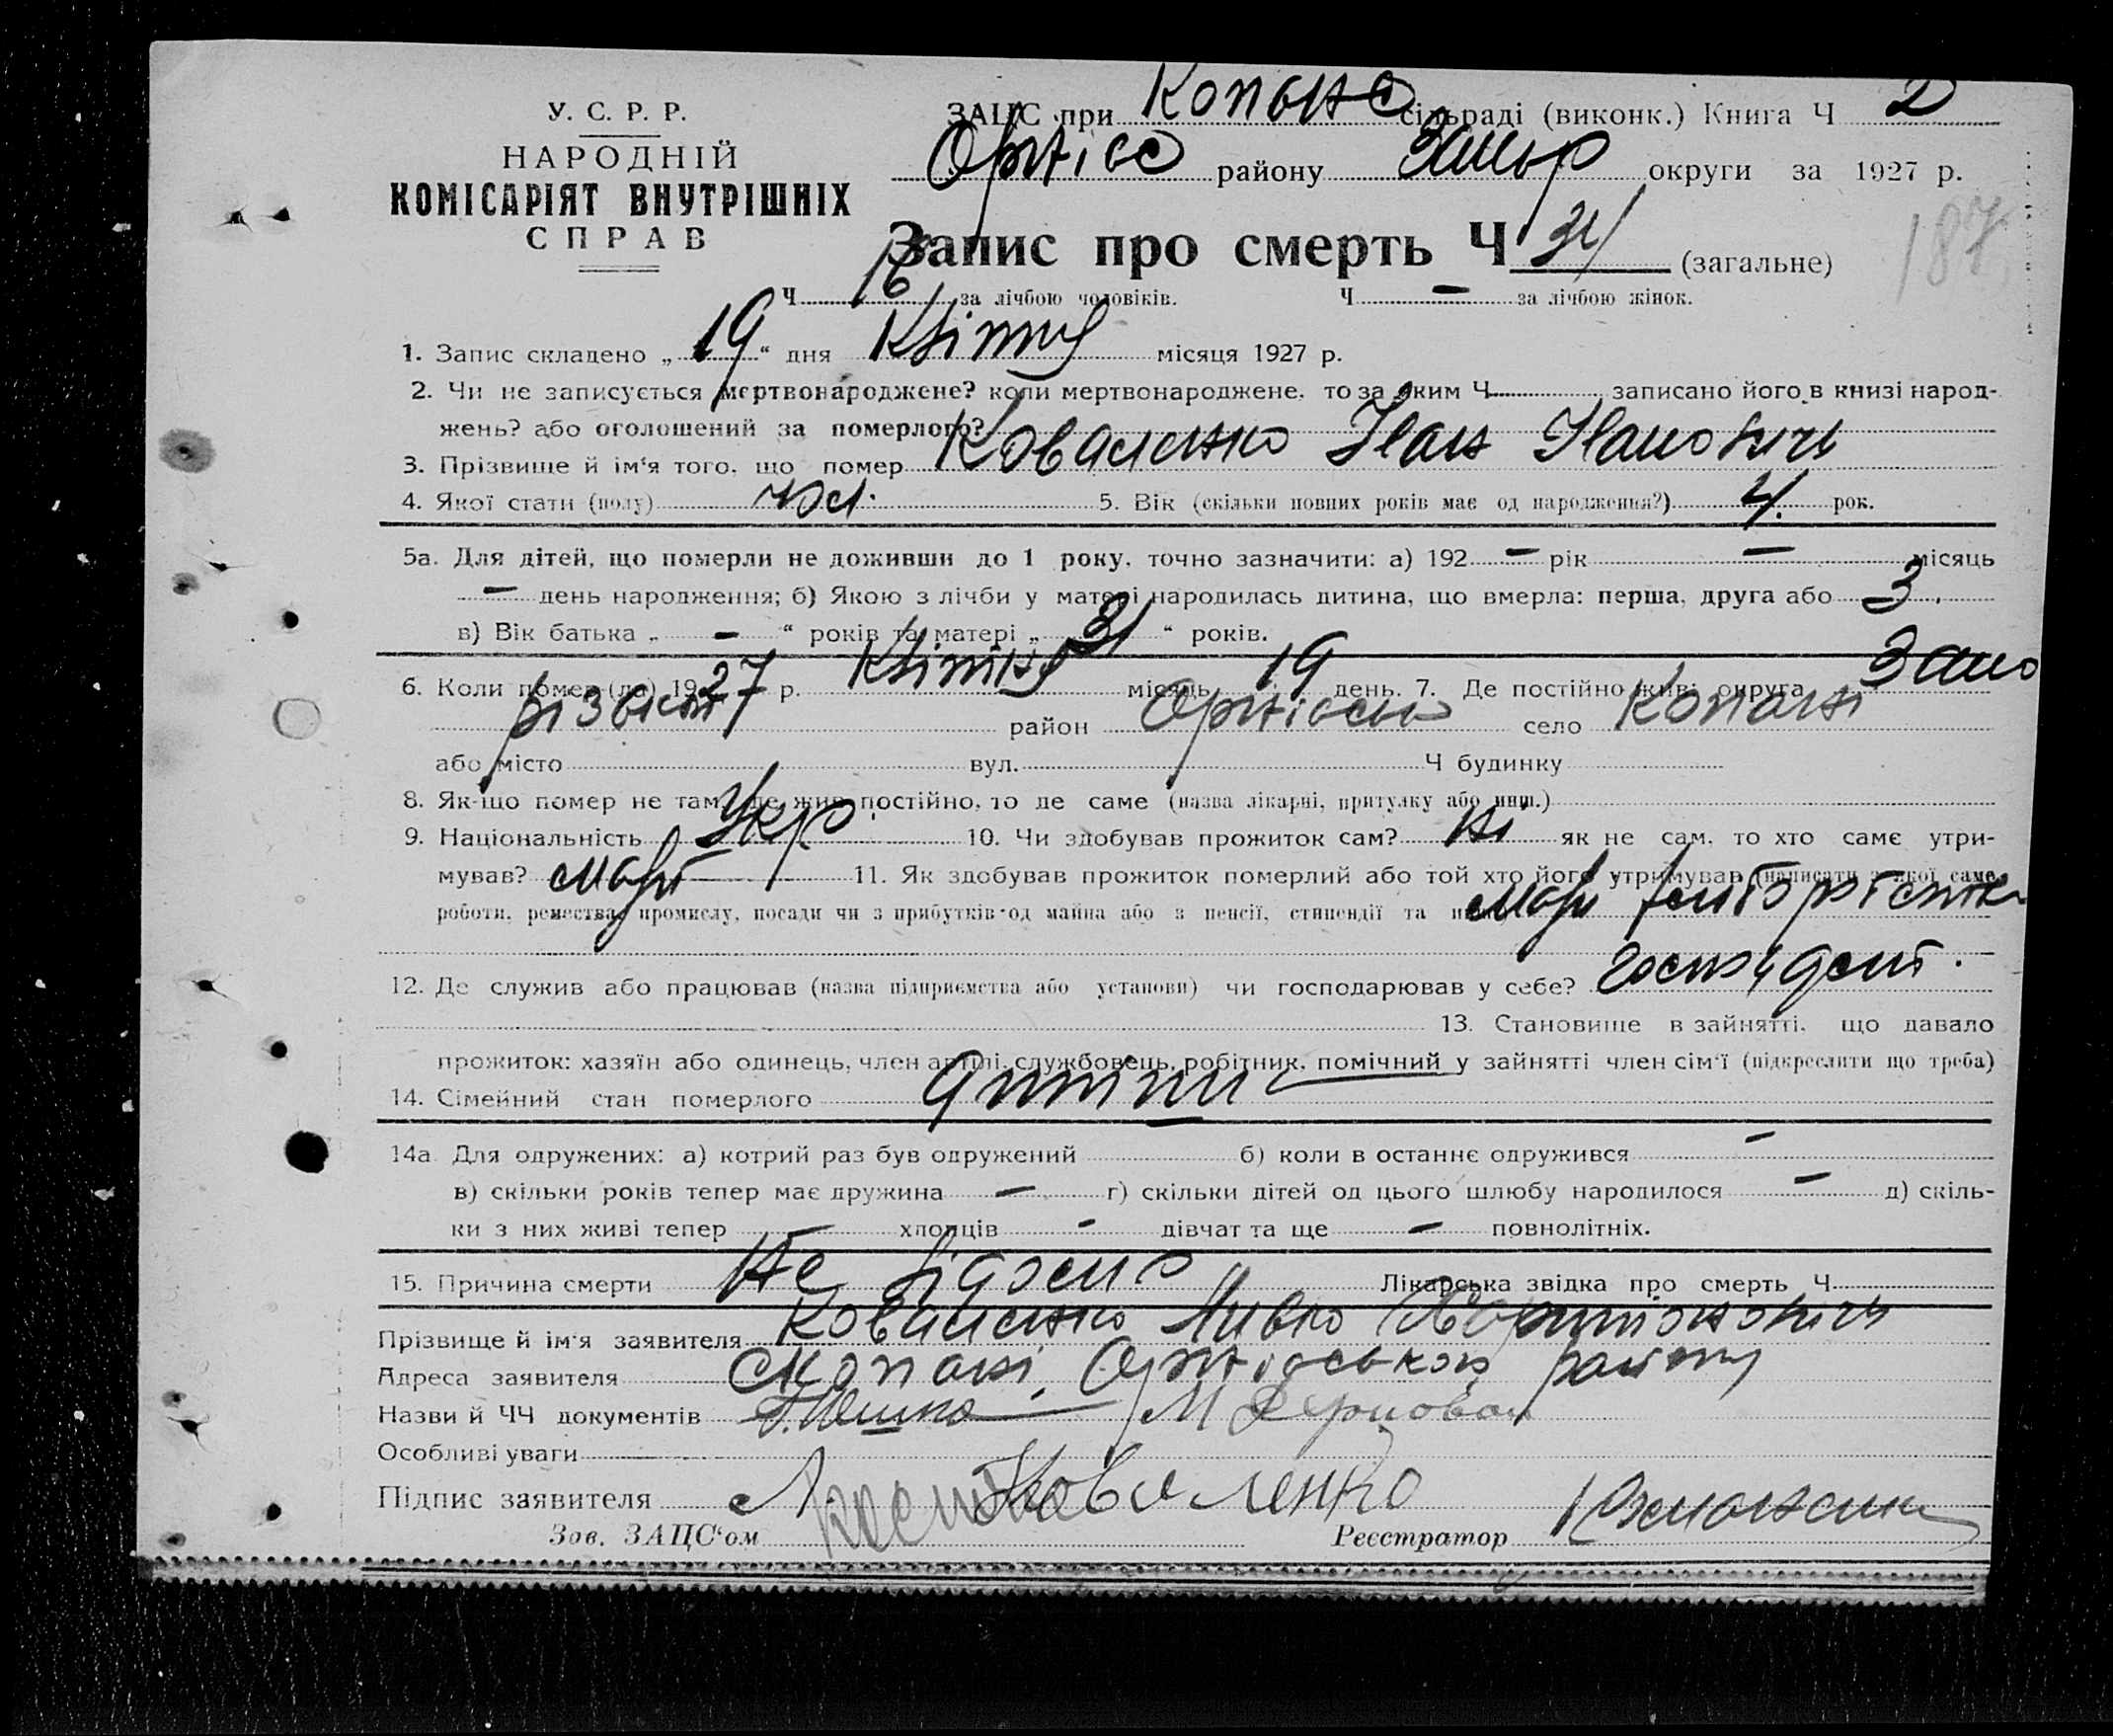 У. С. Р. Р.
НАРОДНІЙ
КОМІСАРІЯТ ВНУТРІШНІХ
СПРАВ
ЗАЦС при Копансь сільраді (виконк.) Книга Ч 2
Оржіць району округи за 1927 р.
Запис про смерть Ч 31 (загальне)
187
Ч 16 за лічбою чоловіків. Ч — за лічбою жінок.
1. Запис складено „ 19 “ дня Квітня місяця 1927 р.
2. Чи не записується мертвонароджене? коли мертвонароджене, то за яким Ч записано його в книзі народ-
жень? або оголошений за померлого?
3. Прізвище й ім'я того, що помер Коваленко Іван Іванович
4. Якої стати (полу) чол. 5. Вік (скільки повних років має од народження?) 4. рок.
5а. Для дітей, що померли не доживши до 1 року, точно зазначити: а) 192 — рік — місяць
— день народження; б) Якою з лічби у матері народилась дитина, що вмерла: перша, друга або 3.
в) Вік батька „ — “ років та матері „ 31 “ років.
6. Коли помер (ла) 1927 р. Квітня місяць 19 день. 7. Де постійно жив: округа
район село Копані
або місто вул. Ч будинку
8. Як-що помер не там, де жив постійно, то де саме (назва лікарні, притулку або инш.)
9. Національність Укр. 10. Чи здобував прожиток сам? Ні як не сам, то хто саме утри-
мував? Мати 11. Як здобував прожиток померлий або той хто його утримував (написати з якої саме
роботи, ремества, промислу, посади чи з прибутків од майна або з пенсії, стипендії та инш.)
12. Де служив або працював (назва підприємства або установи) чи господарював у себе?
13. Становище в зайнятті, що давало
прожиток: хазяїн або одинець, член артілі, службовець, робітник, помічний у зайнятті член сім'ї (підкреслити що треба)
14. Сімейний стан померлого дитина
14а Для одружених: а) котрий раз був одружений б) коли в останнє одружився —
в) скільки років тепер має дружина — г) скільки дітей од цього шлюбу народилося — д) скіль-
ки з них живі тепер — хлопців - дівчат та ще — повнолітніх.
15. Причина смерти Не відомо Лікарська звідка про смерть Ч
Прізвище й ім'я заявителя Коваленко
Адреса заявителя Копані, Оржіцького району
Назви й ЧЧ документів
Особливі уваги
Підпис заявителя Коваленко
Зав. ЗАЦС'ом Реєстратор